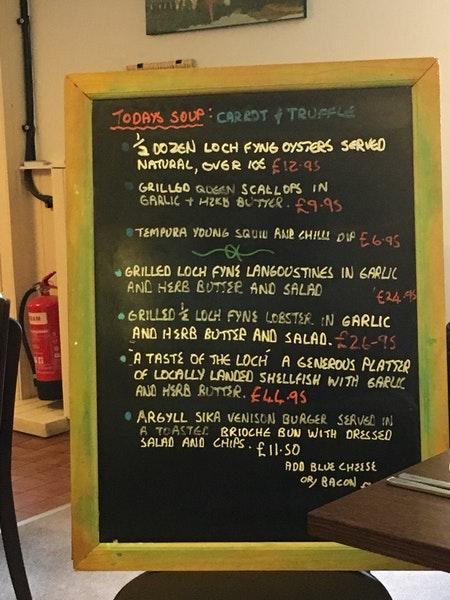 TODAYS SOUP: CARROT & TRUFFLE
½ DOZEN LOCH FYNE OYSTERS SERVED
NATURAL, OVER ICE £12.95
GRILLED QUEEN SCALLOPS IN
GARLIC + HERB BUTTER. £9.95
TEMPURA YOUNG SQUID AND CHILLI DIP £6.95
GRILLED LOCH FYNE LANGOUSTINES IN GARLIC
AND HERB BUTTER AND SALAD
£24.95
GRILLED ½ LOCH FYNE LOBSTER IN GARLIC
AND HERB BUTTER AND SALAD. £26.95
'A TASTE OF THE LOCH' A GENEROUS PLATTER
OF LOCALLY LANDED SHELLFISH WITH GARLIC
AND HERB BUTTER. £44.95
ARGYLL SIKA VENISON BURGER SERVED IN
A TOASTED BRIOCHE BUN WITH DRESSED
SALAD AND CHIPS. £11.50
ADD BLUE CHEESE
OR BACON